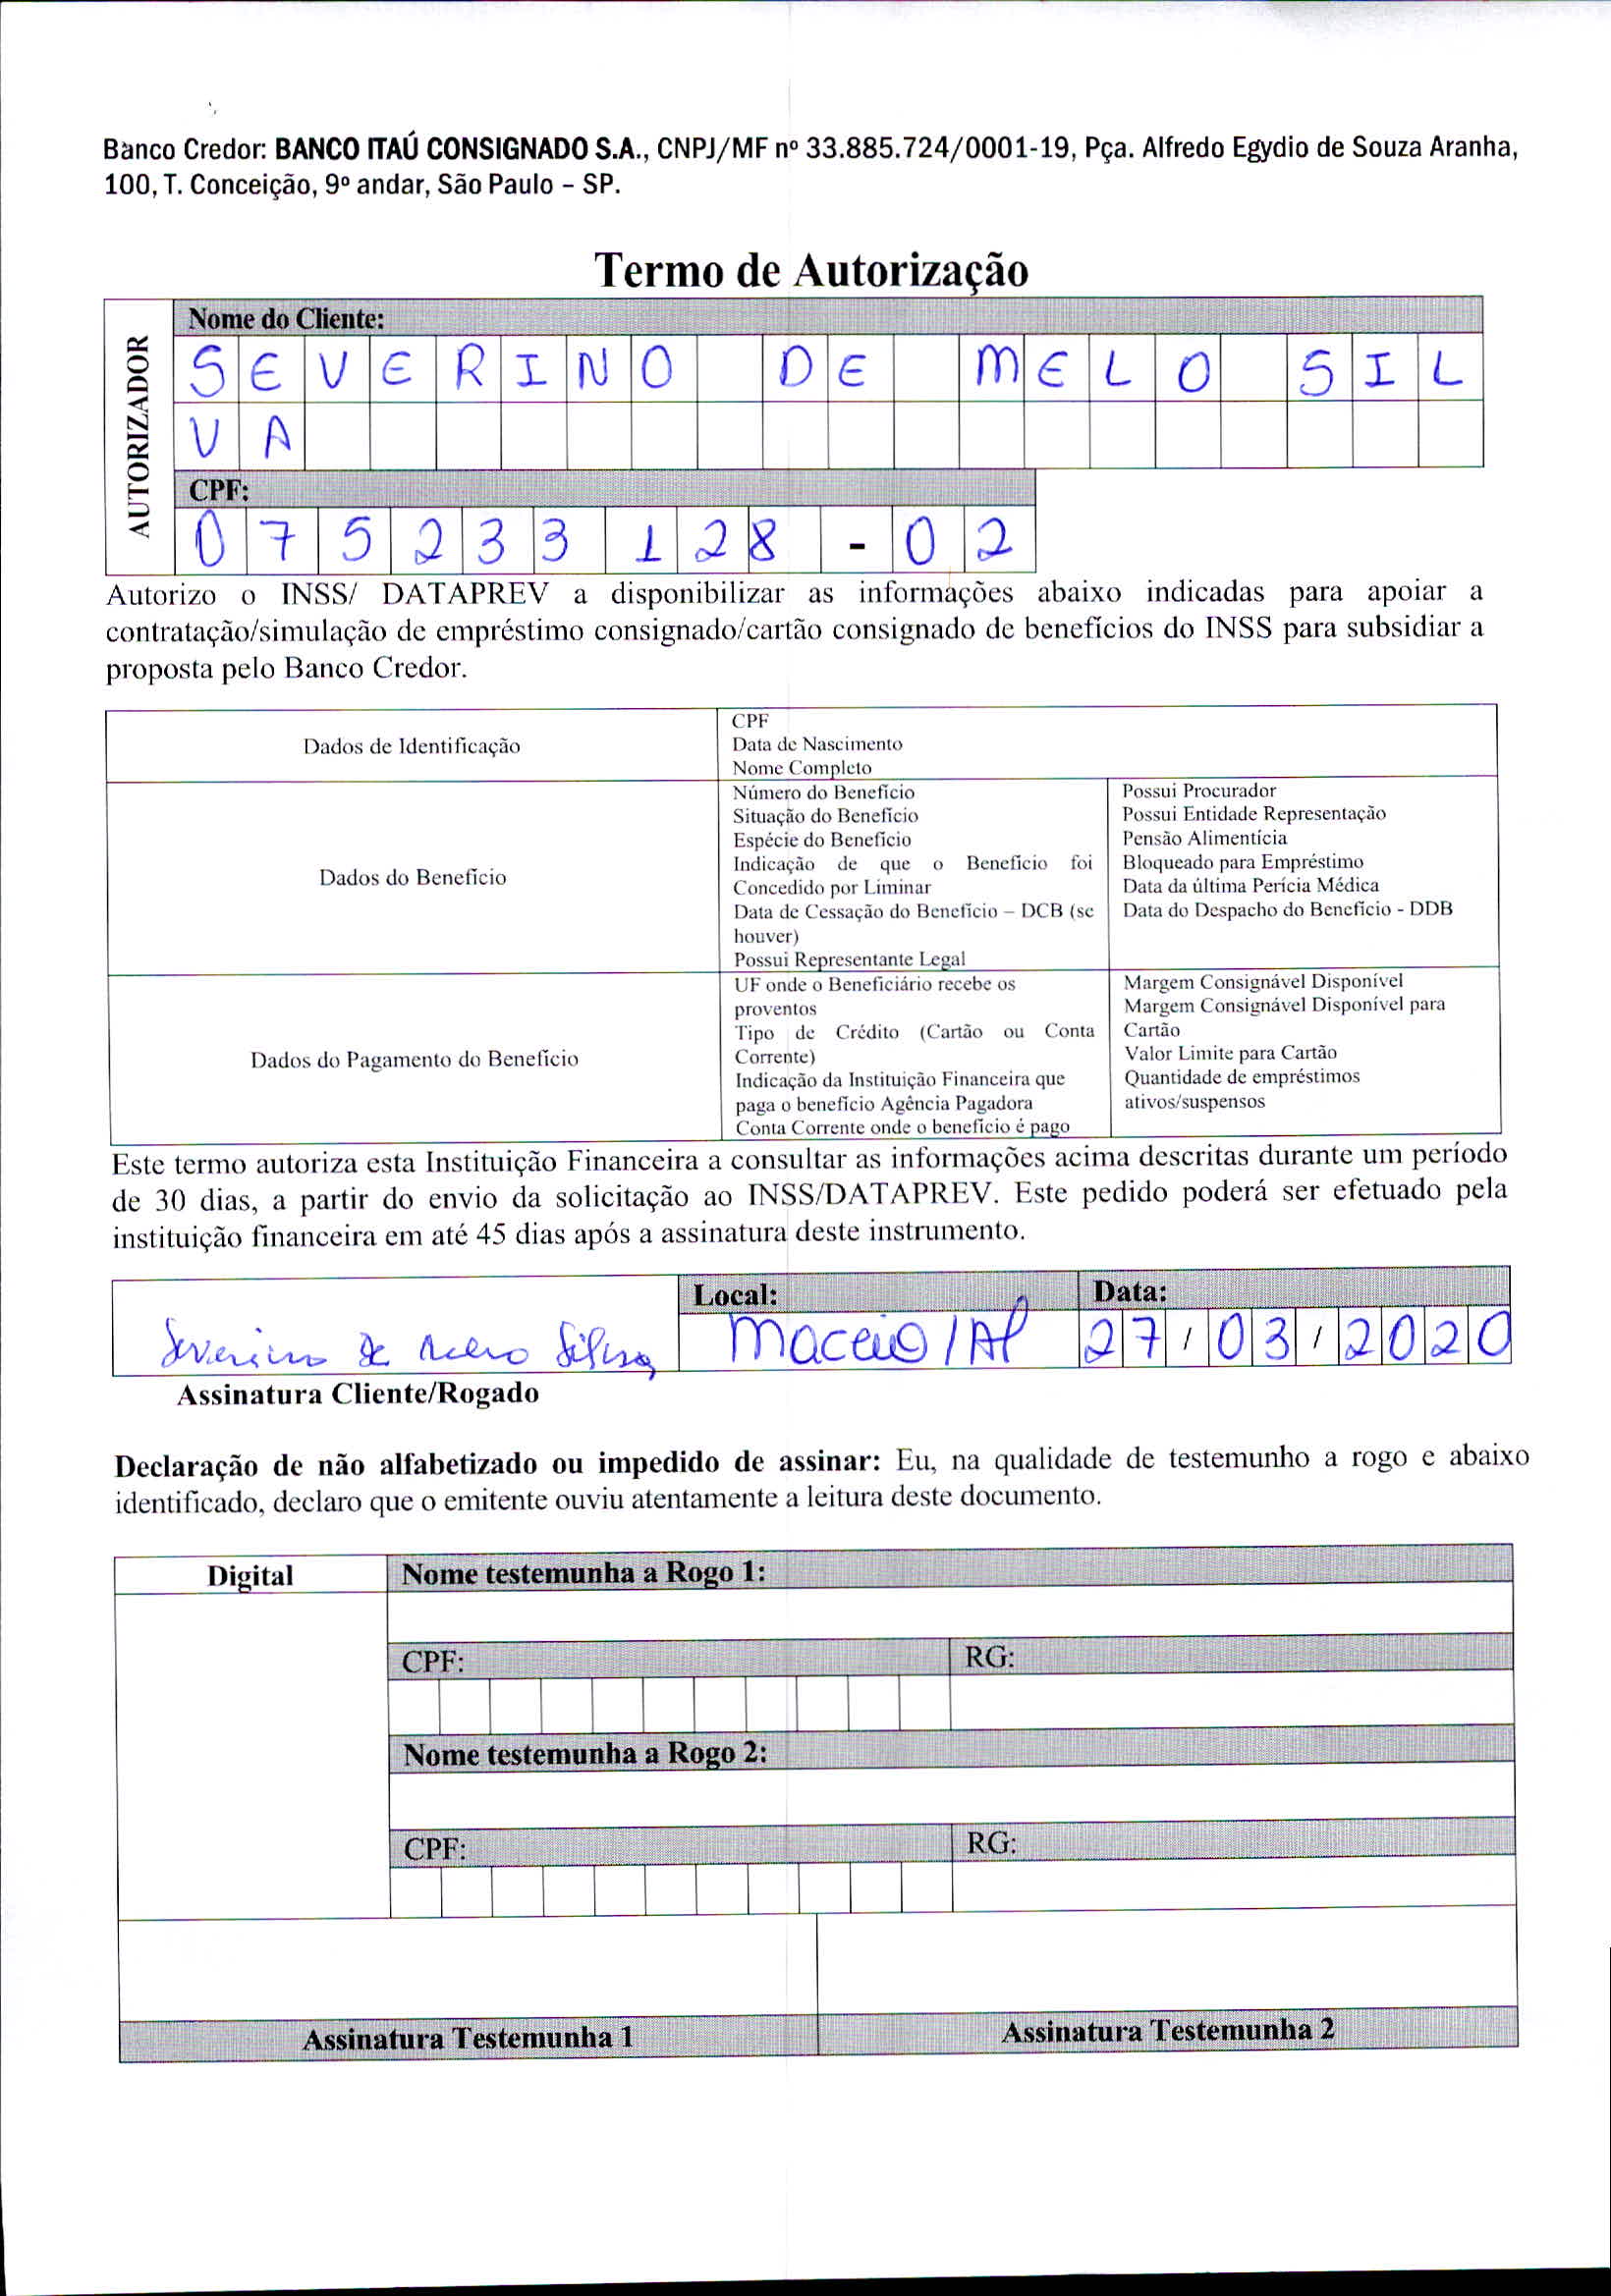 Banco Credor: BANCO ITAÚ CONSIGNADO S.A., CNPJ/MF nº 33.885.724/0001-19, Pça. Alfredo Egydio de Souza Aranha,
100, T. Conceição, 9º andar, São Paulo – SP.
Termo de Autorização
AUTORIZADOR
Nome do Cliente:
SEVERINO DE MELO SIL
VA
CPF:
075233128-02
Autorizo o INSS/ DATAPREV a disponibilizar as informações abaixo indicadas para apoiar a
contratação/simulação de empréstimo consignado/cartão consignado de benefícios do INSS para subsidiar a
proposta pelo Banco Credor.
Dados de Identificação
CPF
Data de Nascimento
Nome Completo
Dados do Benefício
Número do Benefício
Situação do Benefício
Espécie do Benefício
Indicação de que o Benefício foi
Concedido por Liminar
Data de Cessação do Benefício – DCB (se
houver)
Possui Representante Legal
Possui Procurador
Possui Entidade Representação
Pensão Alimentícia
Bloqueado para Empréstimo
Data da última Perícia Médica
Data do Despacho do Benefício - DDB
Dados do Pagamento do Benefício
UF onde o Beneficiário recebe os
proventos
Tipo de Crédito (Cartão ou Conta
Corrente)
Indicação da Instituição Financeira que
paga o benefício Agência Pagadora
Conta Corrente onde o benefício é pago
Margem Consignável Disponível
Margem Consignável Disponível para
Cartão
Valor Limite para Cartão
Quantidade de empréstimos
ativos/suspensos
Este termo autoriza esta Instituição Financeira a consultar as informações acima descritas durante um período
de 30 dias, a partir do envio da solicitação ao INSS/DATAPREV. Este pedido poderá ser efetuado pela
instituição financeira em até 45 dias após a assinatura deste instrumento.
Severino de Melo Silva
Local:
Maceio/Al
Data:
27/03/2020
Assinatura Cliente/Rogado
Declaração de não alfabetizado ou impedido de assinar: Eu, na qualidade de testemunho a rogo e abaixo
identificado, declaro que o emitente ouviu atentamente a leitura deste documento.
Digital
Nome testemunha a Rogo 1:
CPF:
RG:
Nome testemunha a Rogo 2:
CPF:
RG:
Assinatura Testemunha 1
Assinatura Testemunha 2